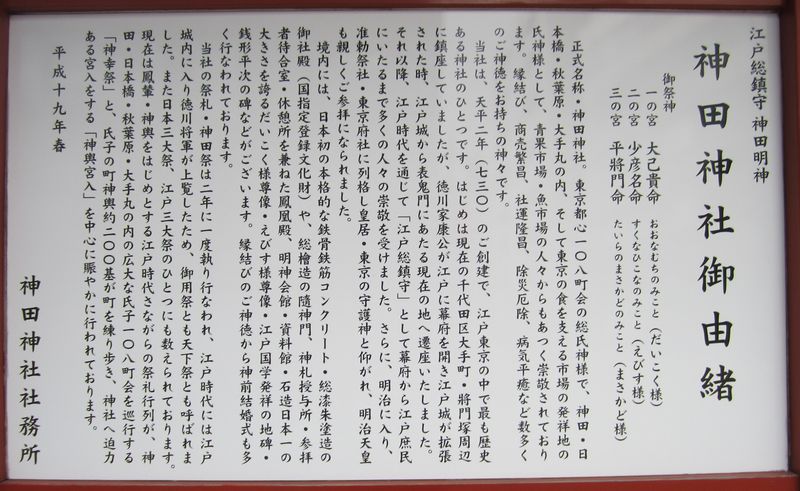 江戸総鎮守 神田明神
神田神社御由緒
御祭神
一の宮 大己貴命 おおなむちのみこと（だいこく様）
二の宮 少彦名命 すくなひこなのみこと（えびす様）
三の宮 平將門命 たいらのまさかどのみこと（まさかど様）
正式名称・神田神社。東京都心一〇八町会の総氏神様で、神田・日
本橋・秋葉原・大手丸の内、そして東京の食を支える市場の発祥地の
氏神様として、青果市場・魚市場の人々からもあつく崇敬されており
ます。縁結び、商売繁昌、社運隆昌、除災厄除、病気平癒など数多く
のご神徳をお持ちの神々です。
当社は、天平二年（七三〇）のご創建で、江戸東京の中で最も歴史
ある神社のひとつです。はじめは現在の千代田区大手町・將門塚周辺
に鎮座していましたが、徳川家康公が江戸に幕府を開き江戸城が拡張
された時、江戸城から表鬼門にあたる現在の地へ遷座いたしました。
それ以降、江戸時代を通じて「江戸総鎮守」として幕府から江戸庶民
にいたるまで多くの人々の崇敬を受けました。さらに、明治に入り、
准勅祭社・東京府社に列格し皇居・東京の守護神と仰がれ、明治天皇
も親しくご参拝になられました。
境内には、日本初の本格的な鉄骨鉄筋コンクリート・総漆朱塗造の
御社殿（国指定登録文化財）や、総檜造の隨神門、神札授与所・参拝
者待合室・休憩所を兼ねた鳳凰殿、明神会館・資料館・石造日本一の
大きさを誇るだいこく様尊像・えびす様尊像・江戸国学発祥の地碑・
銭形平次の碑などがございます。縁結びのご神徳から神前結婚式も多
く行なわれております。
当社の祭礼・神田祭は二年に一度執り行なわれ、江戸時代には江戸
城内に入り徳川将軍が上覧したため、御用祭とも天下祭とも呼ばれま
した。また日本三大祭、江戸三大祭のひとつにも数えられております。
現在は鳳輦・神輿をはじめとする江戸時代さながらの祭礼行列が、神
田・日本橋・秋葉原・大手丸の内の広大な氏子一〇八町会を巡行する
「神幸祭」と、氏子の町神輿約二〇〇基が町を練り歩き、神社へ迫力
ある宮入をする「神輿宮入」を中心に賑やかに行われております。
平成十九年春
神田神社社務所